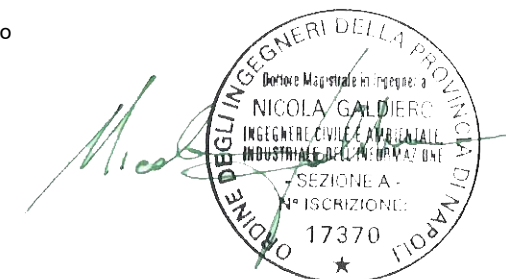 o
ORDINE DEGLI INGEGNERI DELLA PROVINCIA DI NAPOLI
Dottore Magistrale in Ingegneria
NICOLA GALDIERO
INGEGNERE CIVILE E AMBIENTALE
INDUSTRIALE DELL'INFORMAZIONE
- SEZIONE A -
N° ISCRIZIONE:
17370
Nicola